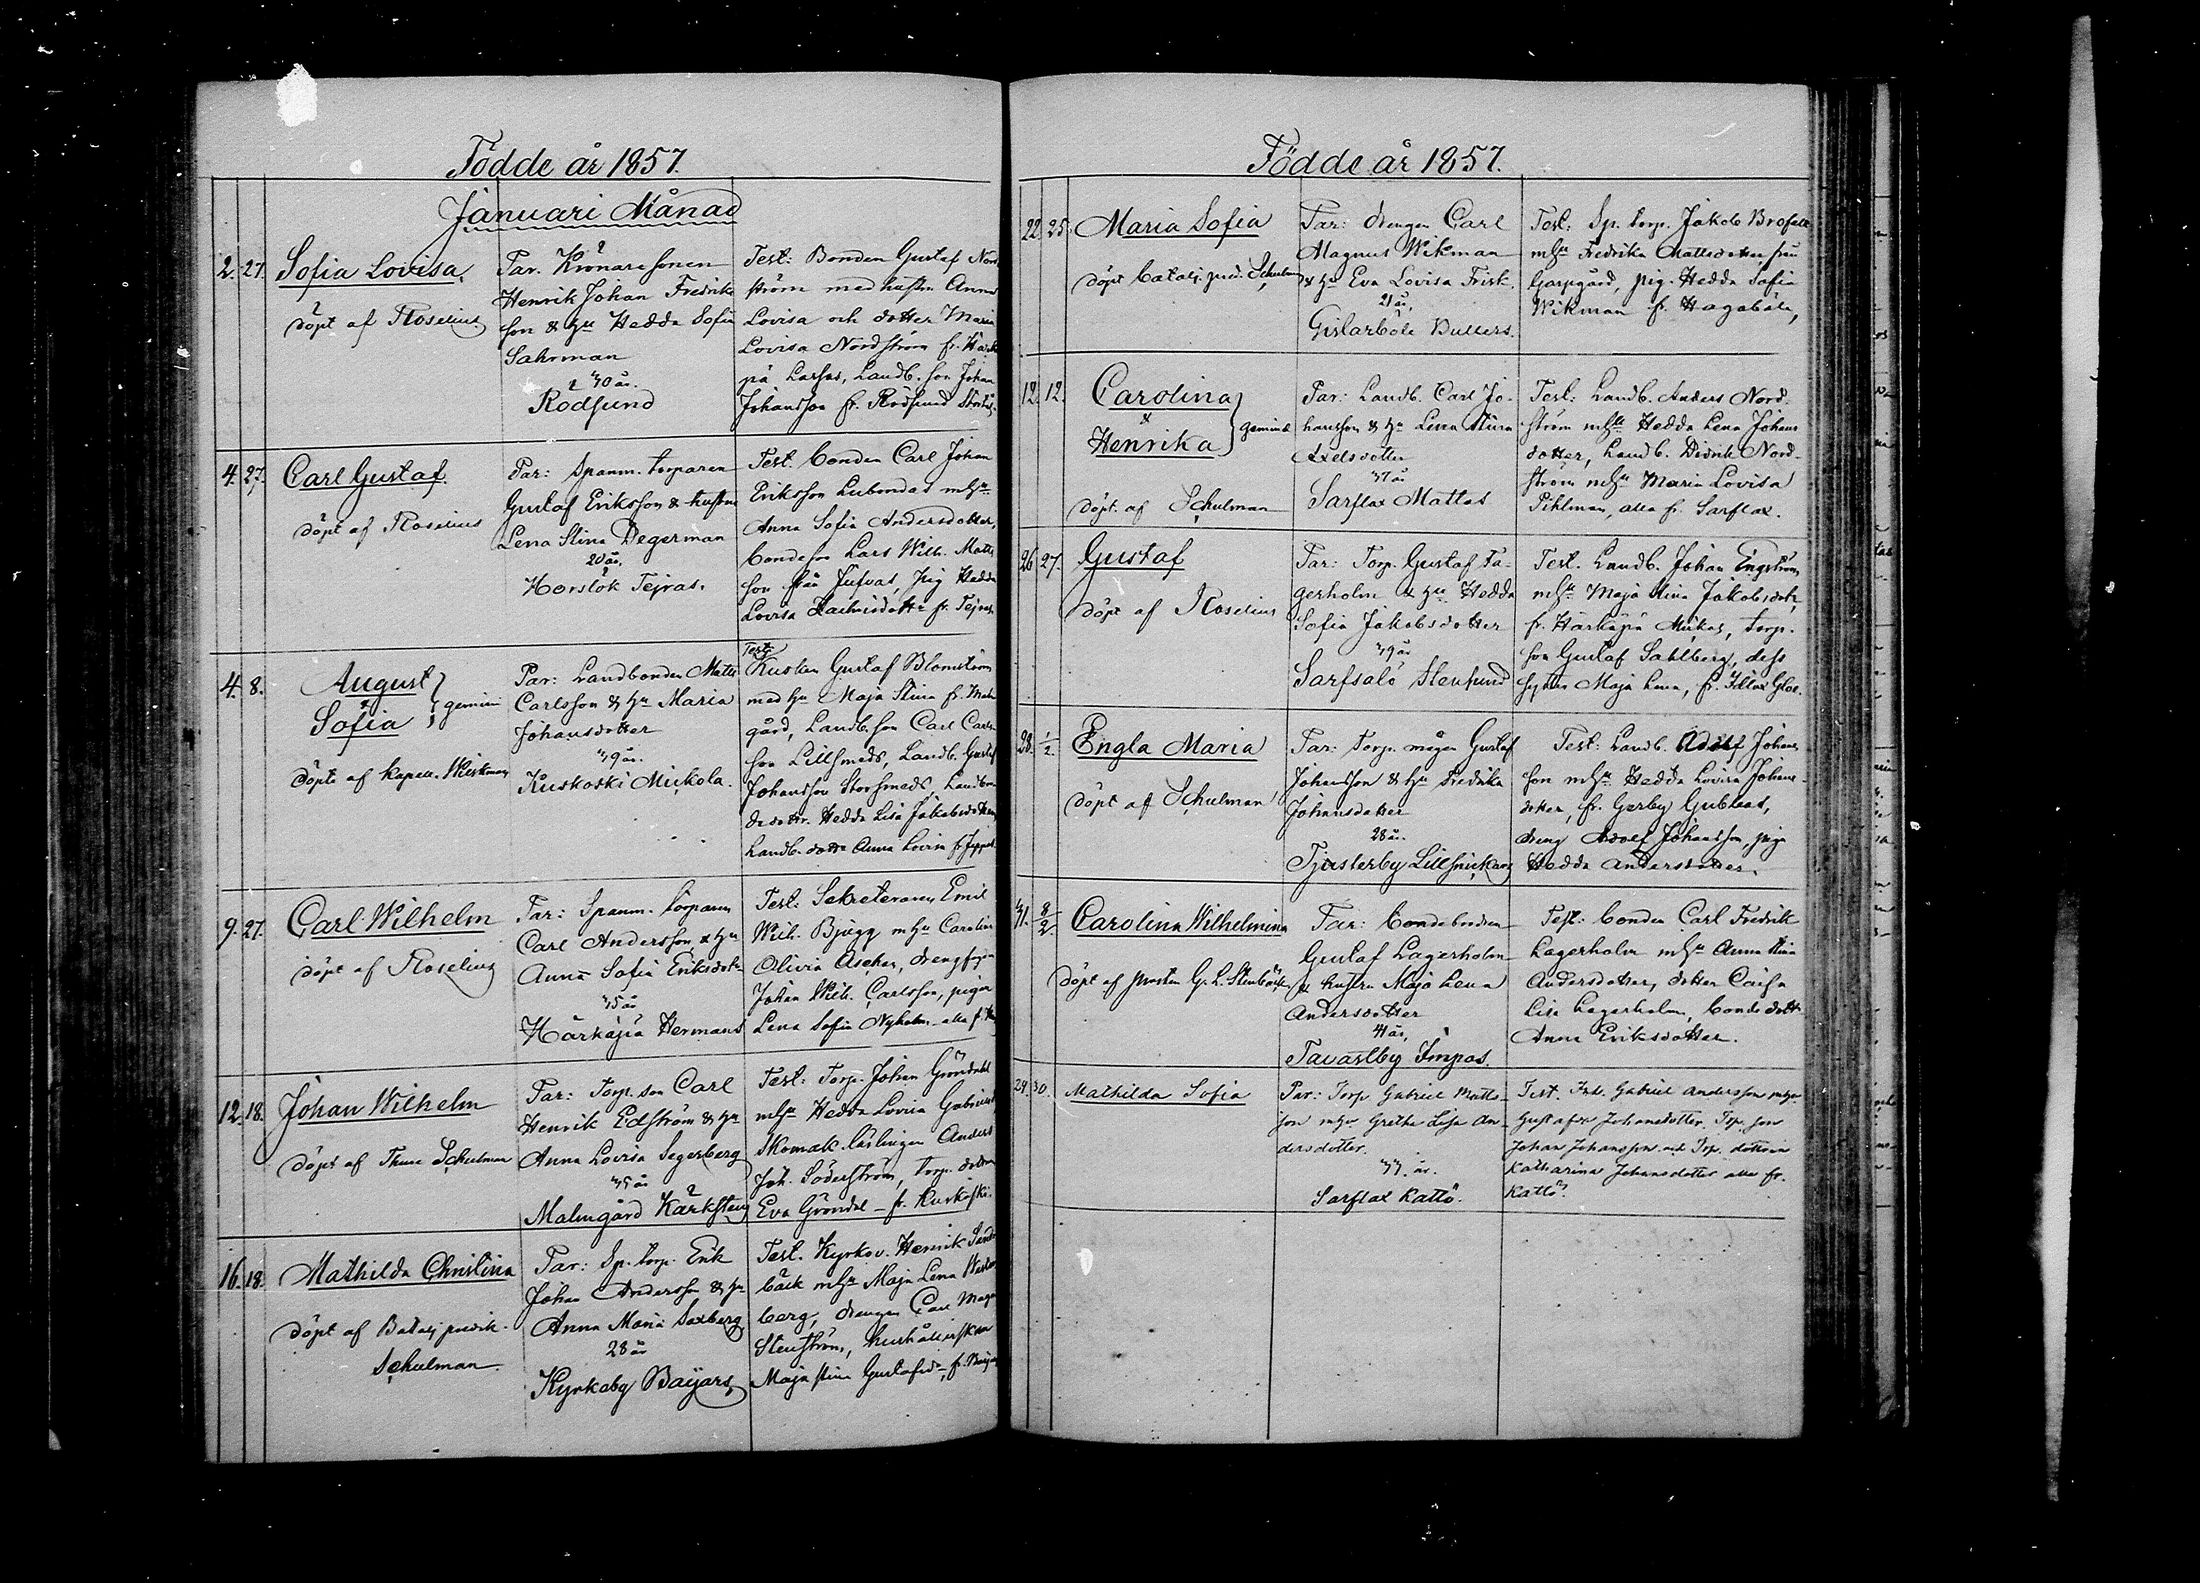 Födde år 1857.
Januari Månad
2. 27. Sofia Lovisa
döpt af Roselius
Par. Kronaresonen
Henrik Johan Fredriks
son & hu Hedda Sofia
Sahrman
40 år.
Rödsund
Test: Bonden Gustaf Nord
ström med hustru Anna
Lovisa och dotter Maria
Lovisa Nordström fr. Härkä
pä Larsas, Landb. son Johan
Johansson fr. Rödsund
4. 27. Carl Gustaf
döpt af Roselius
Par: Spanm. torparen
Gustaf Eriksson & hustru
Lena Stina Degerman
20 år.
Horslök Tejras.
Test. bonden Carl Johan
Eriksson Lubondas mhu
Anna Sofia Andersdotter,
bondeson Lars Wilh. Matts
son från Jufvas, pig Hedda
Lovisa fr. Tejras
4. 8. August
Sofia } gemini
döpte af kapell. Wirkman
Par: Landbonden Matts
Carlsson & hu Maria
Johansdotter
39 år.
Kuskoski Mickola.
Test:
Kusken Gustaf Blomström
med hu Maja Stina fr. Malm
gård, Landb. son Carl Carls
son Lillsmeds, Landb. Gustaf
Johansson Storsmeds, Landbon
de dotr. Hedda Lisa Jakobsdotter
Landb. dotter Anna Lovisa
9. 27. Carl Wilhelm
döpt af Roselius
Par: Spanm. torparen
Carl Andersson & hu
Anna Sofia Eriksdotr
35 år
Härkäpä Hermans
Test: Sekreteraren Emil
Wilh. Bjugg mhu Carolina
Olivia Ascher, drengen
Johan Wilh. Carlsson, pigan
Lena Sofia Nyholm alla fr.
12. 18. Johan Wilhelm
döpt af Thure Schulman
Par: Torp. son Carl
Henrik Edström & hu
Anna Lovisa Segerberg
35 år
Malmgård Kärksteng
Test: Torp. Johan Gröndahl
mhu Hedda Lovisa Gabriels
Skomak. lärlingen Anders
Joh. Söderström, torp. dottern
Eva Gröndal fr. Kuskoski.
16. 18. Mathilda Christina
döpt af Batalj predik.
Schulman.
Par: Sp. torp. Erik
Johan Andersson & hu
Anna Maria Saxberg
28 år
Kyrkoby Baijars
Test. Kyrkov. Henrik Sand
bäck mhu Maja Lena Wester
berg, drengen Carl Magn
Stenström, hushållerskan
Maja Stina Gustafsdr, fr.
Födde år 1857.
22. 25. Maria Sofia
döpt batalj. pred. Schulman
Par: drengen Carl
Magnus Wikman
& hu Eva Lovisa Frisk.
21 år,
Gislarböle Bullers.
Test: Sp. torp. Jakob
mhu Fredrika Mattsdotter från
Garpgård, pig. Hedda Sofia
Wikman fr. Hagaböle,
12. 12. Carolina
&
Henrika } gemini
döpt. af Schulman
Par: Landb. Carl Jo-
hansson & hu Lena Stina
Axelsdotter
37 år
Sarflax Mattas
Test: Landb. Anders Nord-
ström mhu Hedda Lena Johans
dotter, Landb. Didrik Nord-
ström mhu Maria Lovisa
Pihlman, alla fr. Sarflax.
26 27. Gustaf
döpt af Roselius
Par: Torp. Gustaf Fa-
gerholm & hu Hedda
Sofia Jakobsdotter
39 år
Sarfsalö Stensund
Test. Landb. Johan Engström
mhu Maja Stina Jakobsdotr,
fr. Härkäpä Mickas, torp.
son Gustaf Sahlberg, dess
syster Maja Lena, fr.
28. 1/2. Engla Maria
döpt af Schulman
Par: torp. mågen Gustaf
Johansson & hu Fredrika
Johansdotter
28 år.
Tjusterby Lillsnickars
Test: Landb. Adolf Johans
son mhu Hedda Lovisa Johans
dotter, fr. Gerby Gubbas,
dreng Adolf Johansson, piga
Hedda Andersdotter.
31. 8/2. Carolina Wilhelmina
döpt af prosten G. L. Stenbäck
Par: bonde
Gustaf Lagerholm
& hustru Maja Lena
Andersdotter
41 år,
Tavastby Impas.
Test: bonden Carl Fredrik
Lagerholm mhu Anna Stina
Andersdotter, dotter Caisa
Lisa Lagerholm, bonde dottr
Anna Eriksdotter.
29. 30. Mathilda Sofia
Par: Torp Gabriel Matts-
son mhu Gretha Lisa An-
dersdotter.
33 år.
Sarflax Kattö.
Test. Gabriel Andersson mhu
Gustafva Johansdotter. Torp. son
Johan Johansson och Torp. dottren
Katharina Johansdotter alla fr.
Kattö.